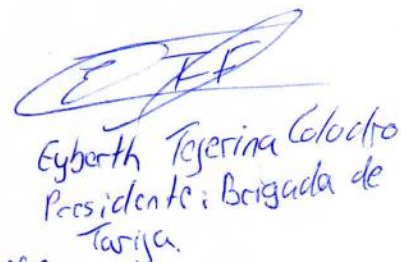 Eyberth Tejerina Colodro
Presidente: Brigada de
Tarija.